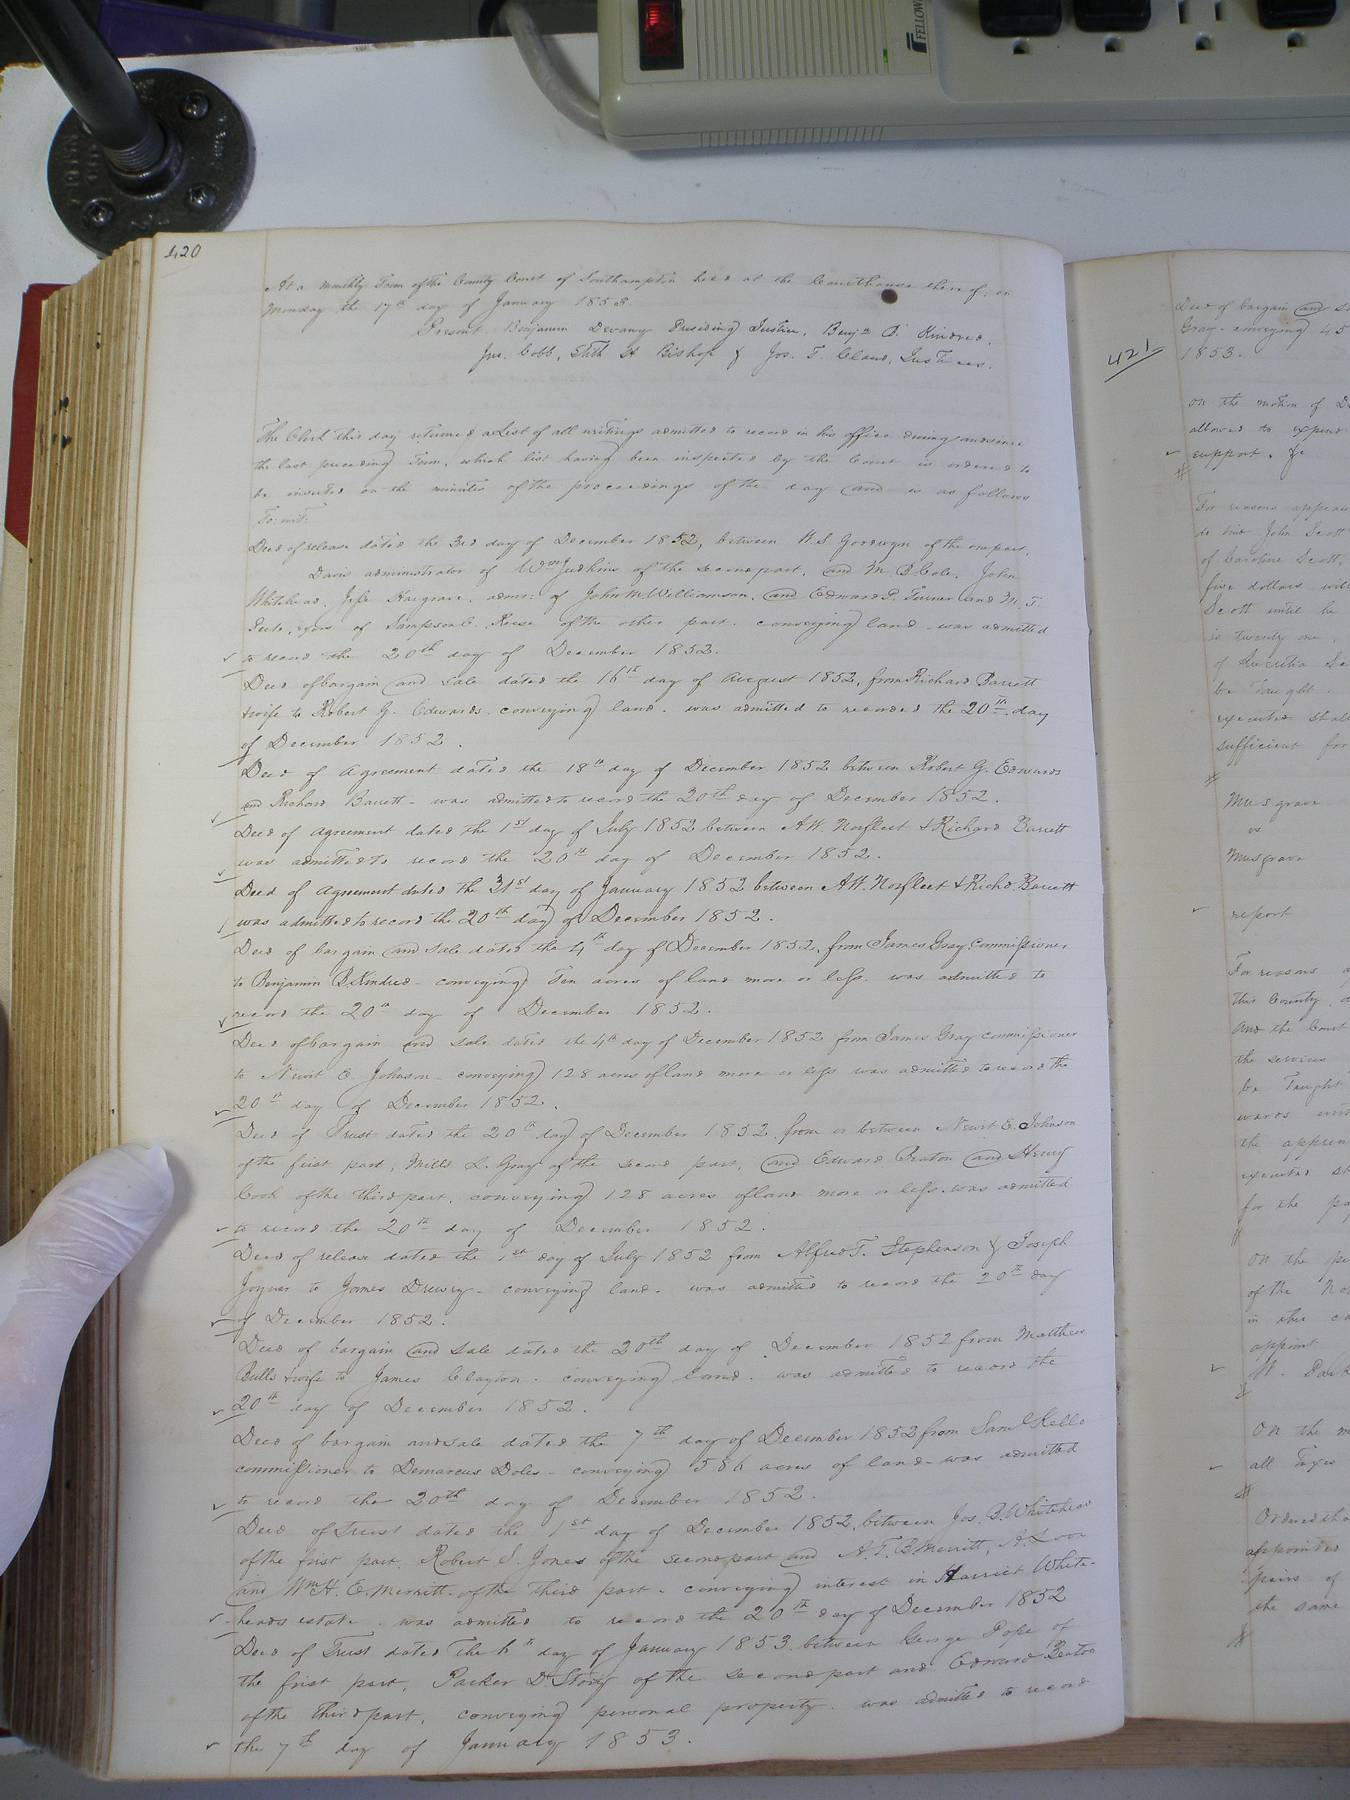 FELLOW
420
At a monthly Term of the County Court of Southampton held at the Courthouse thereof, on
Monday the 17th day of January 1853.
Present. Benjamin Devany Presiding Justice, Benjn B. Kindred,
Jno. Cobb, Stith H Bishop & Jos. T. Claud, Justices.
The Clerk this day returned a List of all writings admitted to record in his office during and since
the last preceding Term, which list having been inspected by the Court is ordered to
be inserted on the minutes of the proceedings of the day and is as follows
To: wit:
Deed of release dated the 3rd day of December 1852, between W. S. Goodwyn of the one part,
Davis administrator of Wm Judkins of the second part, and M. B Cole, John
Whitehead, Jesse Hargrave, admr: of John M Williamson, and Edward P. Turner and M. T.
exors of Sampson C. Reese of the other part. conveying land was admitted
to record the 20th day of December 1852.
Deed of bargain and sale dated the 16th day of August 1852, from Richard Barrett
& wife to Robert G. Edwards. conveying land. was admitted to recorded the 20th day
of December 1852.
Deed of Agreement dated the 18th day of December 1852 between Robert G. Edwards
and Richard Barrett - was admitted to record the 20th day of December 1852.
Deed of Agreement dated the 1st day of July 1852 between A W. Norfleet & Richard Barrett
was admitted to record the 20th day of December 1852.
Deed of Agreement dated the 31st day of January 1852 between A W. Norfleet & Richd Barrett
was admitted to record the 20th day of December 1852.
Deed of bargain and sale dated the 4th day of December 1852, from James Gray Commissioner
to Benjamin B. Kindred - conveying Ten acres of land more or less was admitted to
record the 20th day of December 1852.
Deed of bargain and sale dated the 4th day of December 1852 from James Gray commissioner
to Newit E. Johnson - conveying 128 acres of land more or less was admitted to record the
20th day of December 1852.
Deed of Trust dated the 20th day of December 1852, from or between Newit E. Johnson
of the first part, Mills L. Gray of the second part, and Edward Beaton and Henry
Cook of the third part, conveying 128 acres of land more or less was admitted
to record the 20th day of December 1852.
Deed of release dated the 1st day of July 1852 from Alfred T. Stephenson & Joseph
Joyner to James Drewry - conveying land - was admitted to record the 20th day
of December 1852.
Deed of bargain and sale dated the 20th day of December 1852 from Matthew
Bulls & wife to James Clayton - conveying land. was admitted to record the
20th day of December 1852.
Deed of bargain and sale dated the 7th day of December 1852 from Saml Kello
commissioner to Demarcus Doles - conveying 586 acres of land - was admitted
to record the 20th day of December 1852.
Deed of Trust dated the 1st day of December 1852, between Jos. B. Whitehead
of the first part, Robert S. Jones of the second part and A. T. B Merritt,
and Wm H. E. Merritt of the third part - conveying interest in Harriet White-
heads estate. was admitted to record the 20th day of December 1852
Deed of Trust dated the 6th day of January 1853. between George Pope of
the first part, Parker D Story of the second part and Edward Beaton
of the third part, conveying personal property. was admitted to record
the 7th day of January 1853.
421
Deed of bargain and
Gray - conveying 45
1853.
on the motion of
allowed to expend
support. &c
For reasons appear
de bind John Scott
of Caroline Scott,
five dollars
Scott until he
is twenty one,
of Lucretia
be Taught.
executed
sufficient for
Musgrave
vs
Musgrave
report
For reasons
this County,
and the Court
the services
be Taught
wards
the appren
executed
for the
on the
of the
in this
appoint
W.
On the
all Taxes
Ordered tha
appointed
pairs of
the same